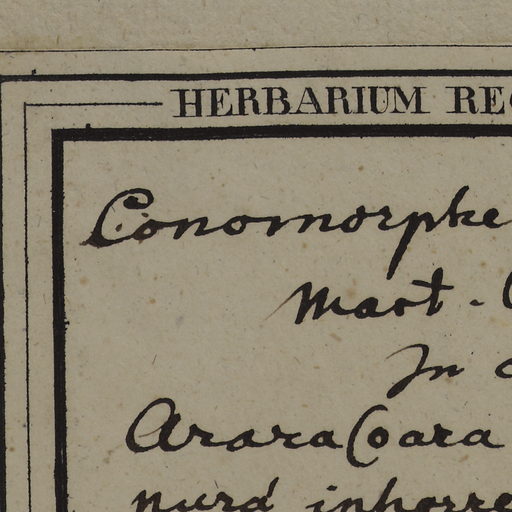 HERBARIUM RE
Conomorphe
Mart.
In
AraraCoara
nurd inhorre